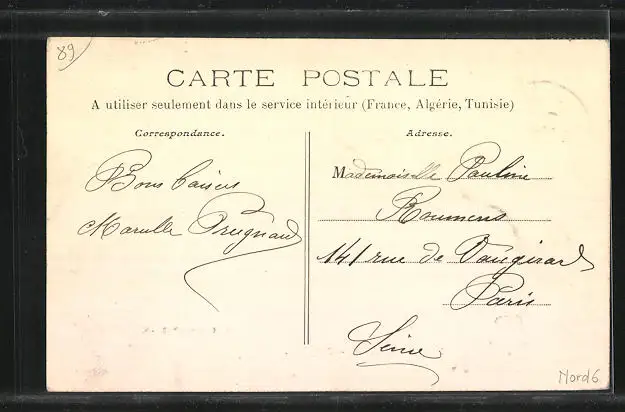 89
CARTE POSTALE
A utiliser seulement dans le service intérieur (France, Algérie, Tunisie)
Correspondance.
Bons baisers
Marcelle Preignaud
Adresse.
Mademoiselle Pauline
Roumens
141 rue de Vaugirard
Paris
Seine
Nord6